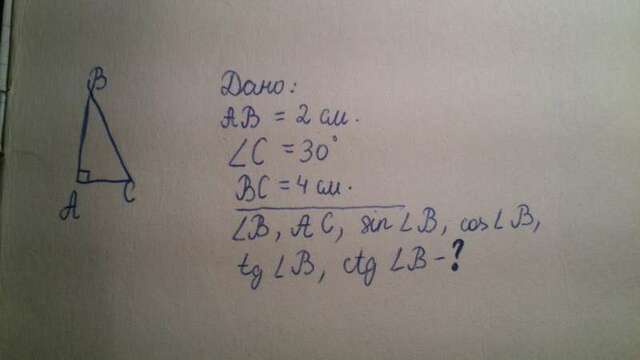 B
A
C
Дано:
AB = 2 см.
∠C = 30°
BC = 4 см.
∠B, AC, sin ∠B, cos ∠B,
tg ∠B, ctg ∠B - ?